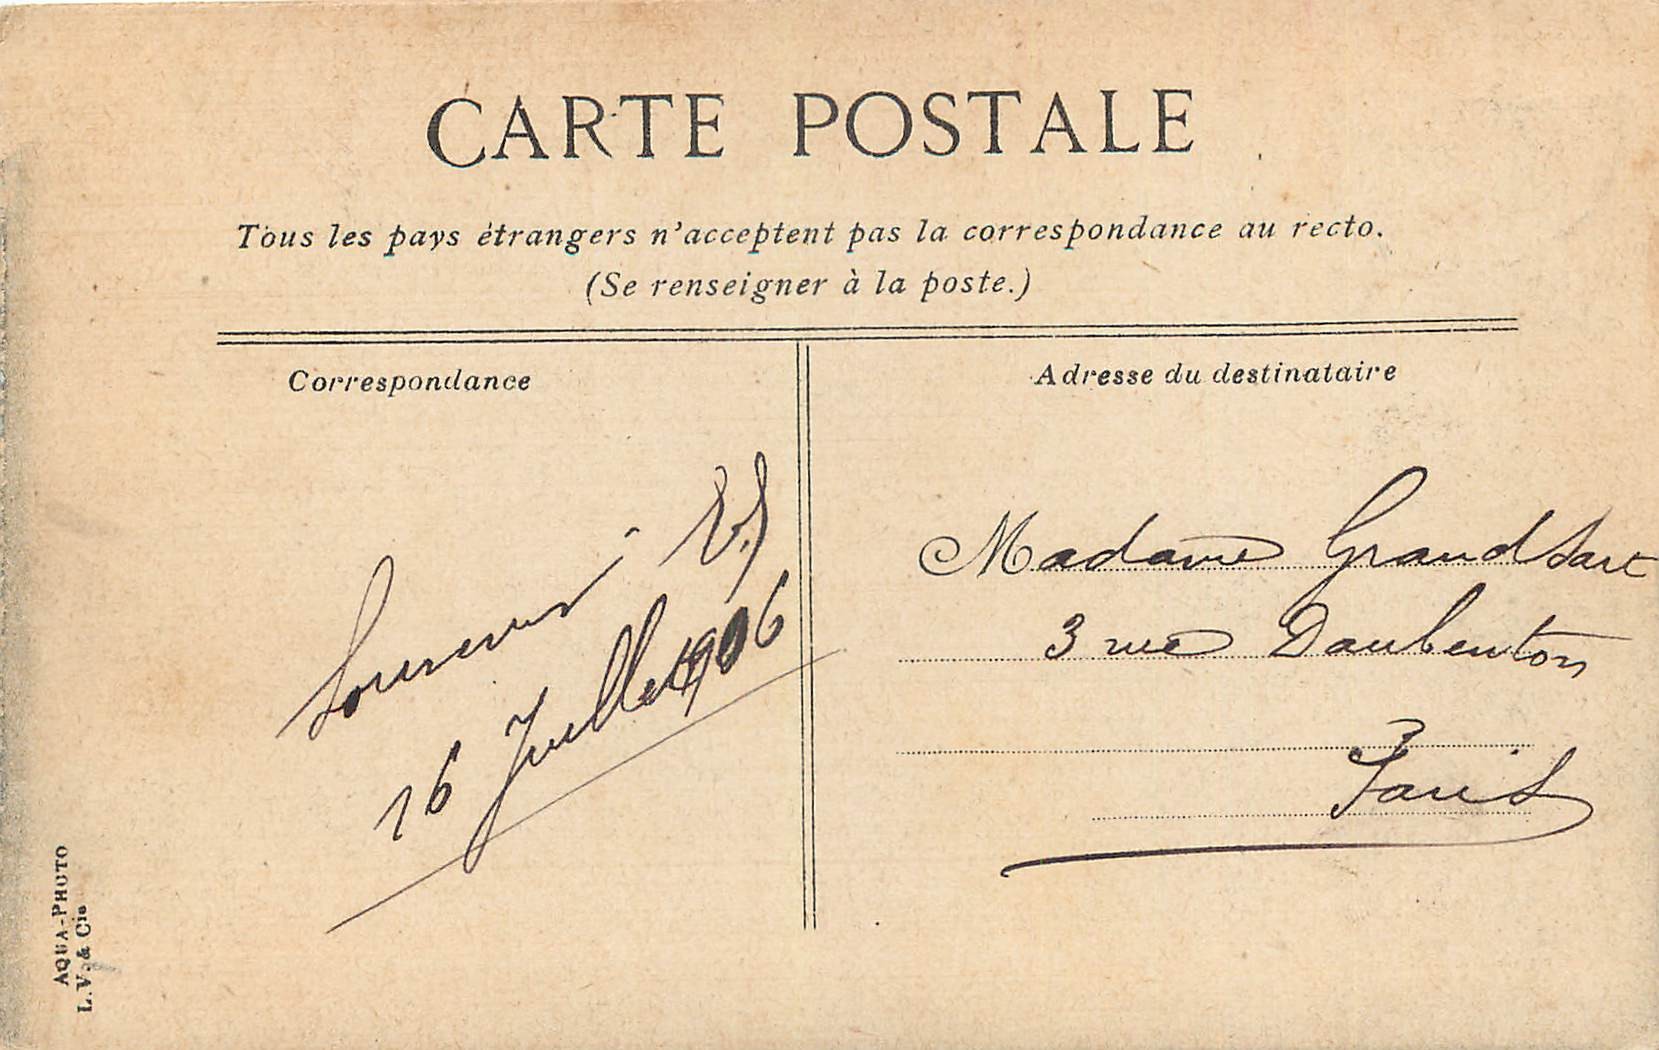 CARTE POSTALE
Tous les pays étrangers n'acceptent pas la correspondance au recto.
(Se renseigner à la poste.)
Correspondance
Souvenir
16 Juillet 1906
Adresse du destinataire
Madame Grandsart
3 rue Daubenton
Paris
AQUA-PHOTO
L.V. & Cie